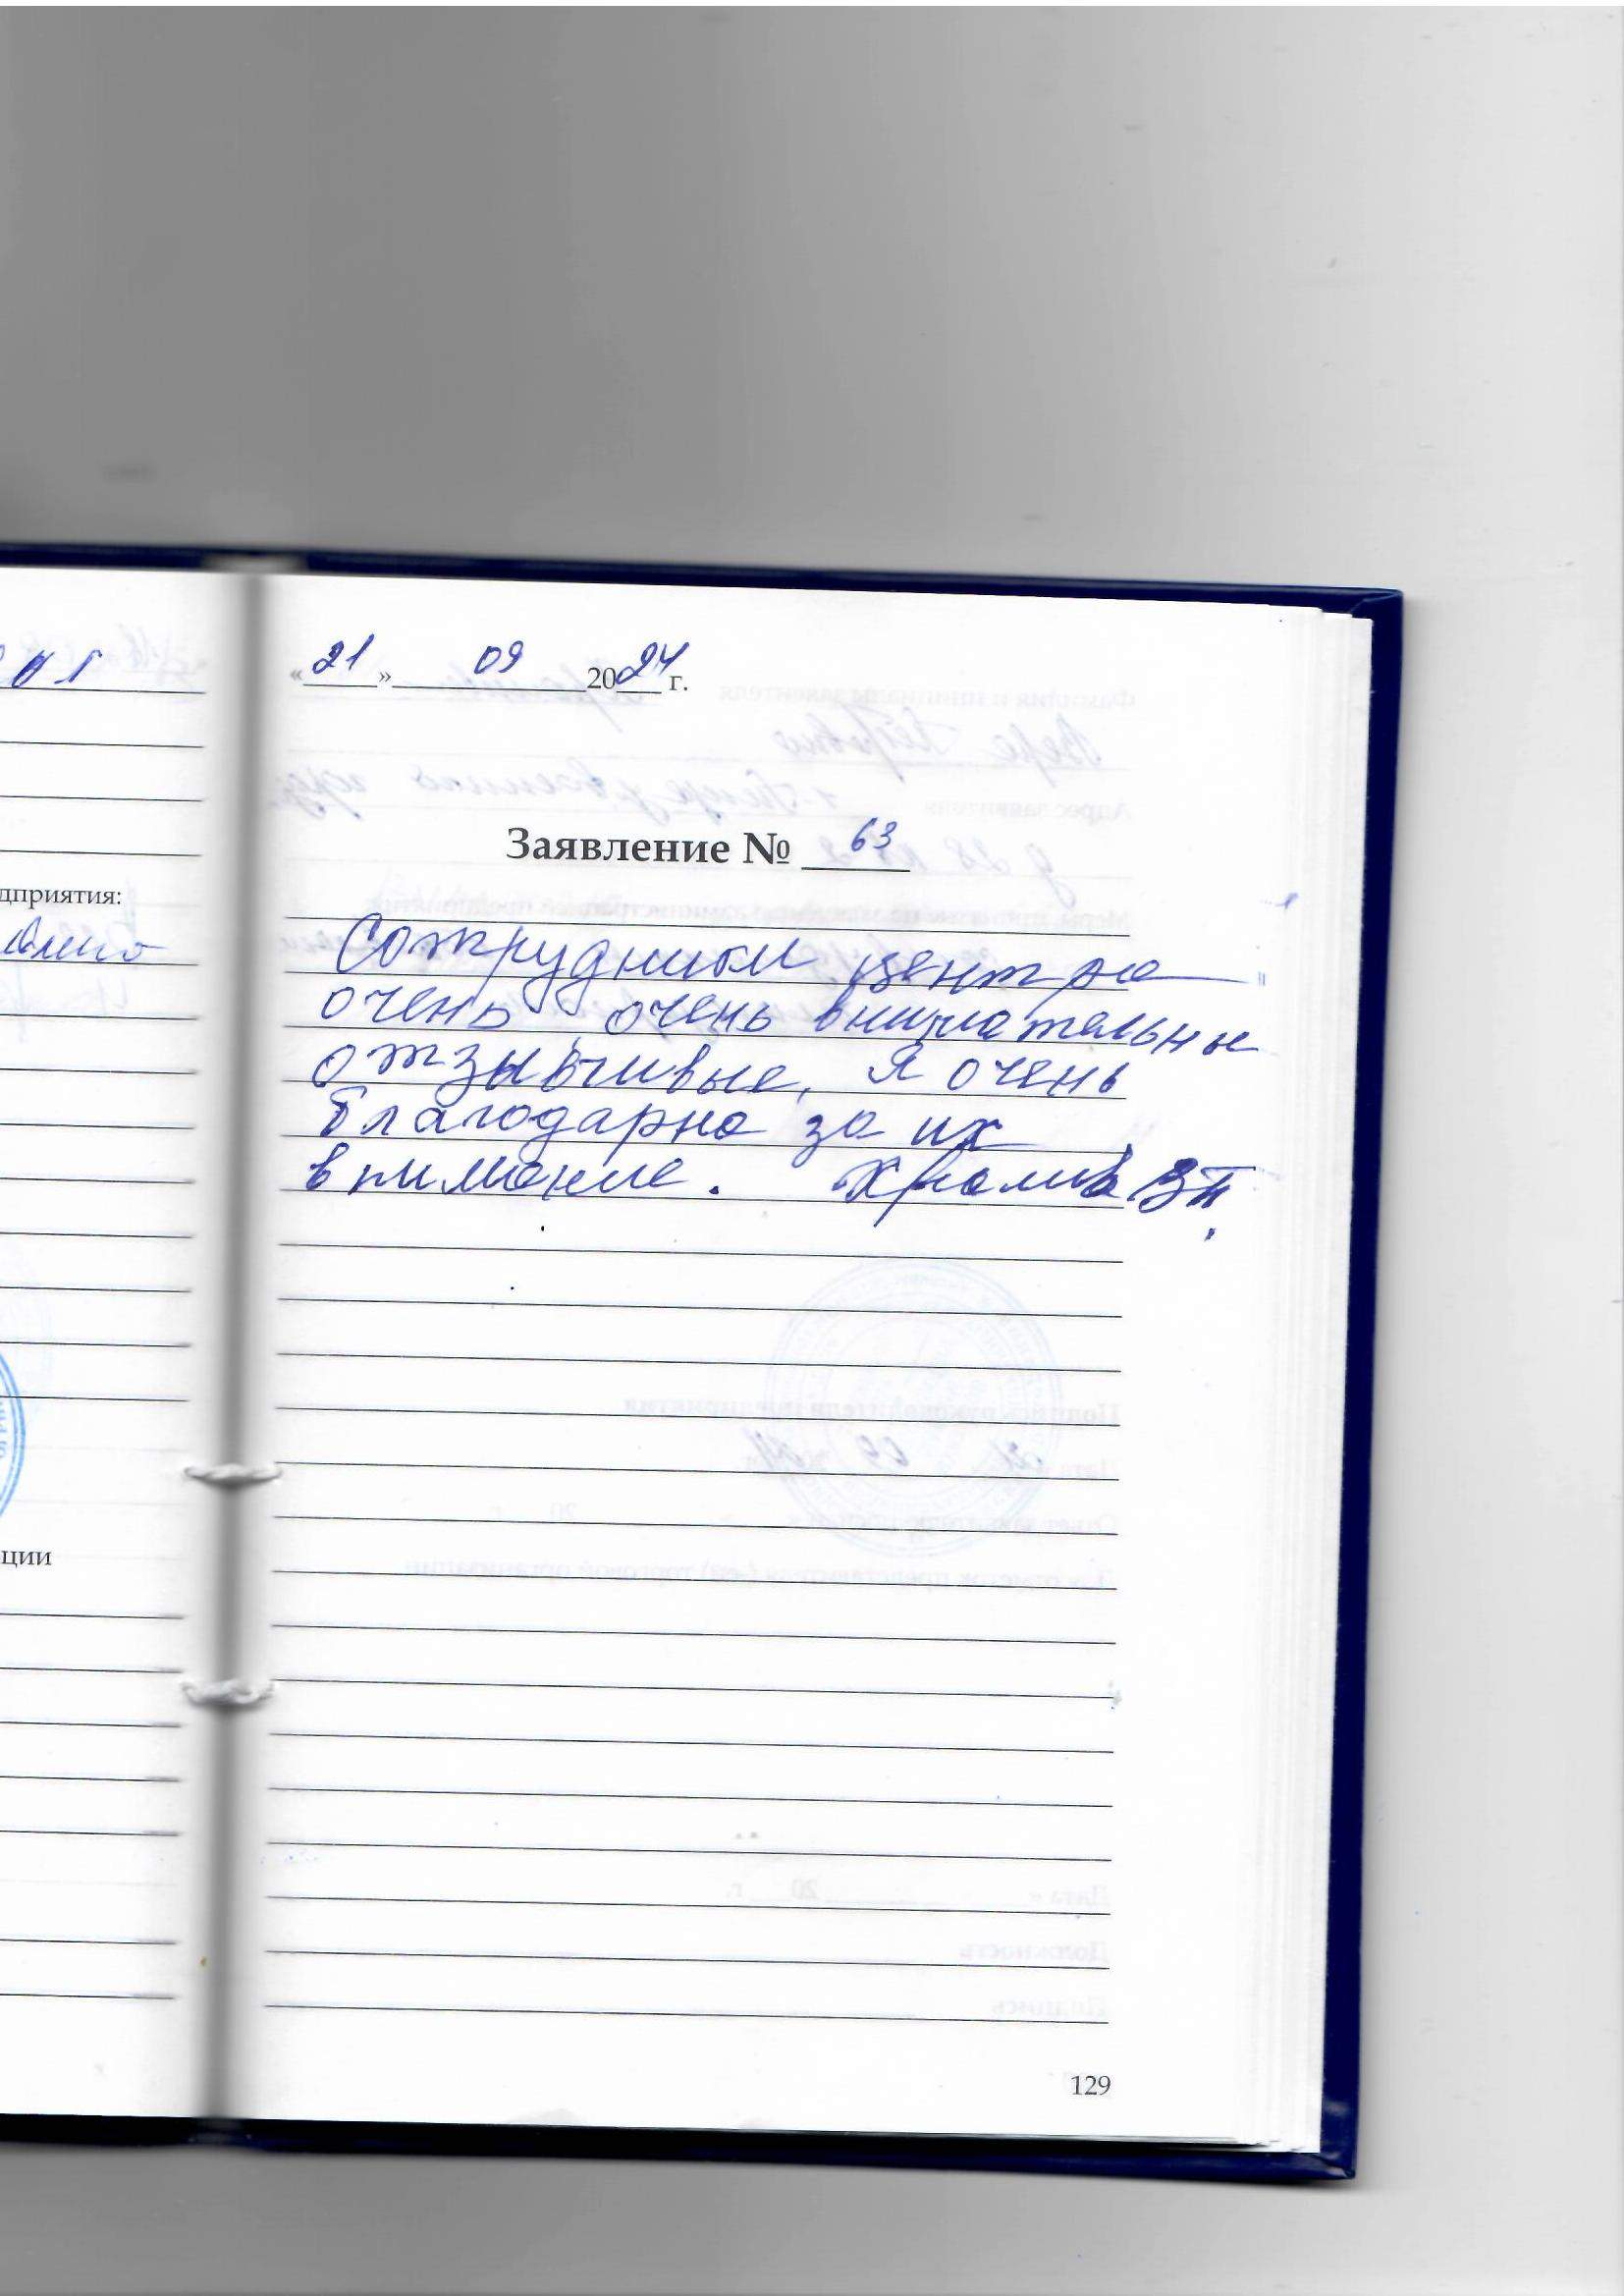 «21» 09 2024 г.
Заявление № 63
дприятия:
Сотрудники центра
очень, очень внимательны
отзывчивые, Я очень
благодарна за их
внимание. ВП.
ции
129